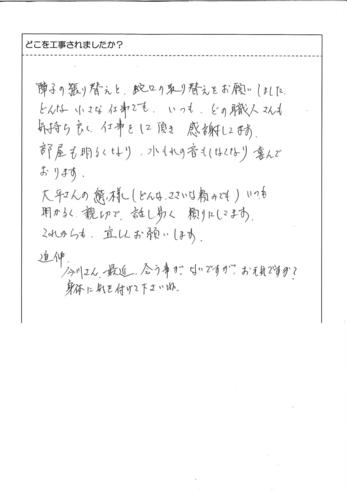 どこを工事されましたか？
障子の張り替えと、蛇口の取り替えをお願いしました
どんな小さな仕事でも、いつも、どの職人さんも
気持ち良く仕事をして頂き感謝してます。
部屋も明るくなり、水もれの音もしなくなり喜んで
おります。
大平さんの皆様（どんな、ささいな頼のでも）いつも
明かるく、親切で、話し易く頼りにしてます。
これからも、宜しくお願いします。
追伸、
今川さん、最近、合う事がないですが、お元気ですか？
身体に気を付けて下さいね。